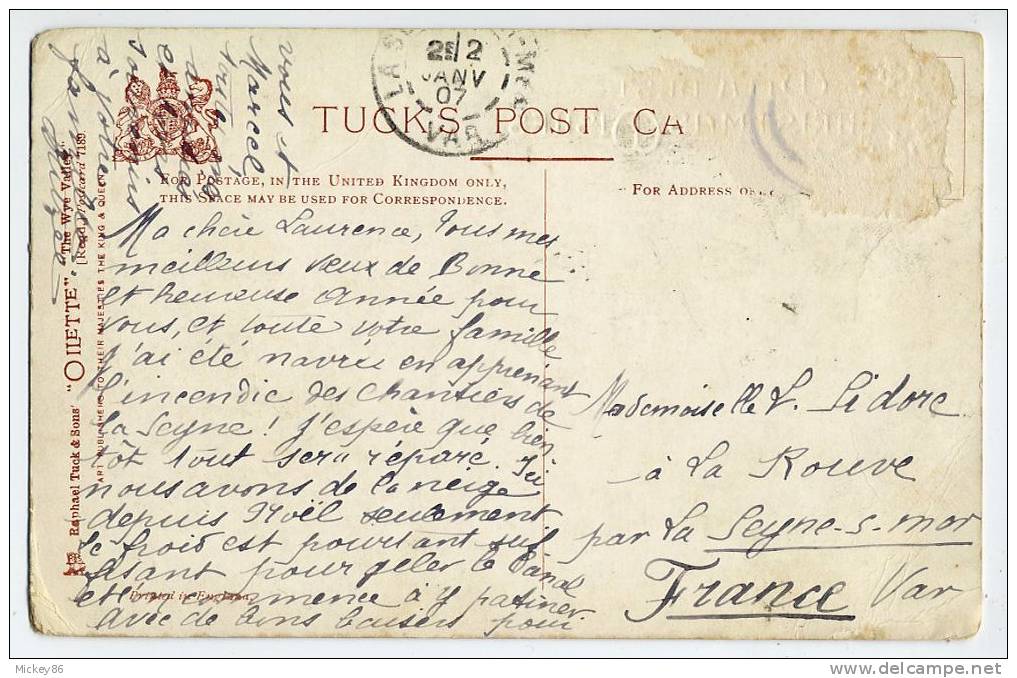 TUCK'S POST CA
FOR POSTAGE, IN THE UNITED KINGDOM ONLY,
THIS SPACE MAY BE USED FOR CORRESPONDENCE.
FOR ADDRESS O
2E 2
JANV
07
VAR
Ma chère Laurence, Tous mes
meilleurs vœux de Bonne
et heureuse Année pour
vous, et toute votre famille
J'ai été navrée en apprenant
l'incendie des Chantiers de
La Seyne! J'espère que bien
tôt tout sera réparé. Ici
nous avons de la neige
depuis Noël seulement
le froid est pourtant suf
fisant pour geler le Canal
et l'on commence à y patiner
Avec de bons baisers pour
vous et
Marcel
souvenirs
à votre
famille.
Mademoiselle L. Lidore
à La Rouve
par La Seyne-s-mer
France Var
Raphael Tuck & Sons' "OILETTE" "The Wye Valley."
[Regd.] Postcard 7189.
ART PUBLISHERS TO THEIR MAJESTIES THE KING & QUEEN.
Printed in England.
Mickey86
www.delcampe.net